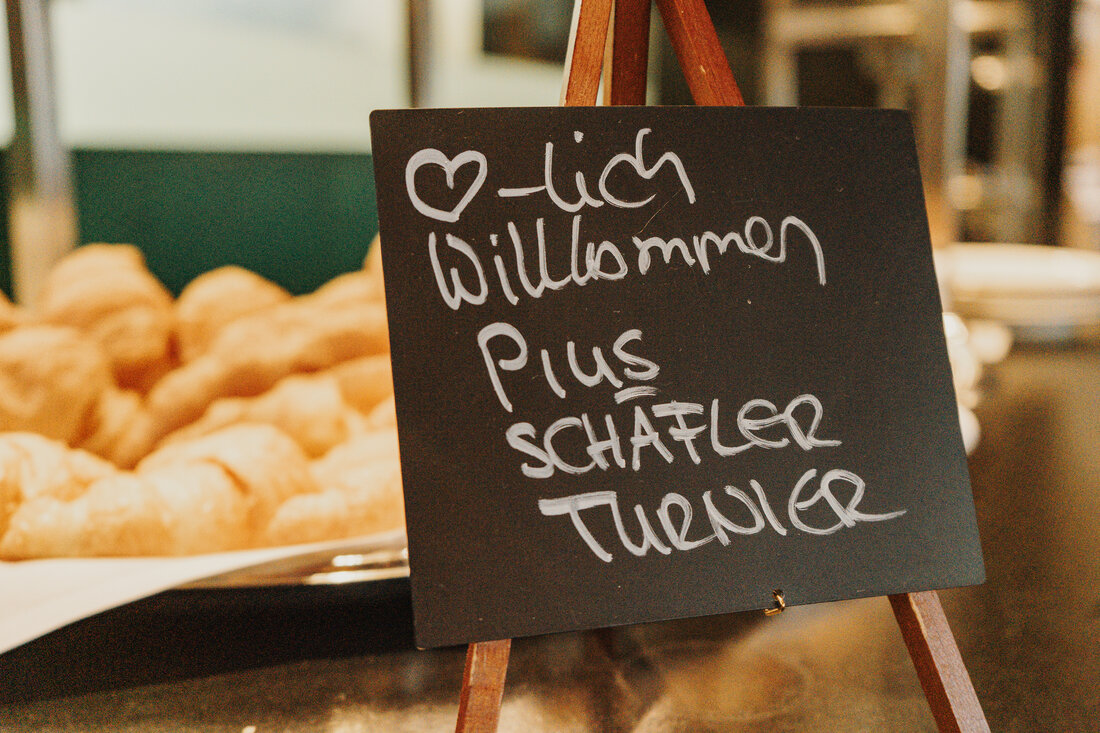 ♡-lich
Willkommen
Pius
SCHÄFLER
TURNIER